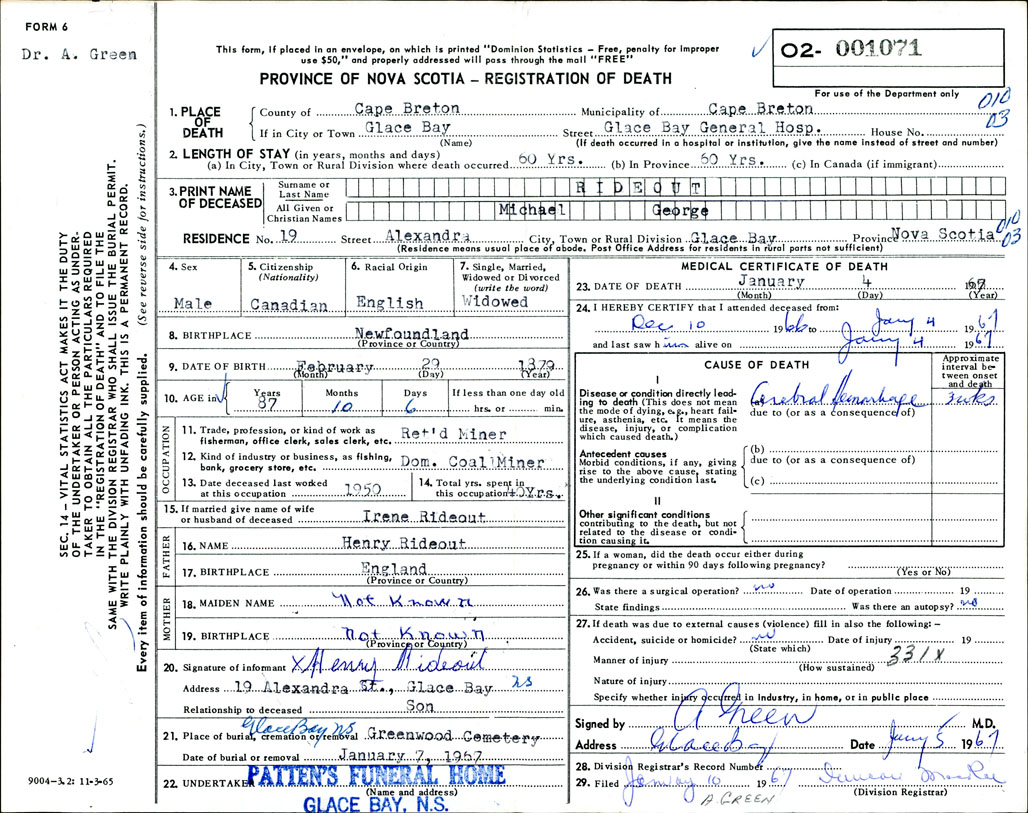 FORM 6
Dr. A. Green
This form, if placed in an envelope, on which is printed "Dominion Statistics – Free, penalty for improper
use $50," and properly addressed will pass through the mail "FREE"
PROVINCE OF NOVA SCOTIA – REGISTRATION OF DEATH
02- 001071
For use of the Department only
010
03
SEC. 14 – VITAL STATISTICS ACT MAKES IT THE DUTY
OF THE UNDERTAKER OR PERSON ACTING AS UNDER-
TAKER TO OBTAIN ALL THE PARTICULARS REQUIRED
IN THE "REGISTRATION OF DEATH" AND TO FILE THE
SAME WITH THE DIVISION REGISTRAR WHO SHALL ISSUE THE BURIAL PERMIT.
WRITE PLAINLY WITH UNFADING INK. THIS IS A PERMANENT RECORD.
Every item of information should be carefully supplied. (See reverse side for instructions.)
1. PLACE OF DEATH
County of Cape Breton Municipality of Cape Breton
If in City or Town Glace Bay Street Glace Bay General Hosp. House No.
(Name) (If death occurred in a hospital or institution, give the name instead of street and number)
2. LENGTH OF STAY (in years, months and days)
(a) In City, Town or Rural Division where death occurred 60 Yrs. (b) In Province 60 Yrs. (c) In Canada (if immigrant)
3. PRINT NAME OF DECEASED
Surname or Last Name RIDEOUT
All Given or Christian Names Michael George
010
03
RESIDENCE No. 19 Street Alexandra City, Town or Rural Division Glace Bay Province Nova Scotia
(Residence means usual place of abode. Post Office Address for residents in rural parts not sufficient)
4. Sex
Male
5. Citizenship
(Nationality)
Canadian
6. Racial Origin
English
7. Single, Married,
Widowed or Divorced
(write the word)
Widowed
8. BIRTHPLACE Newfoundland
(Province or Country)
9. DATE OF BIRTH February 29 1879
(Month) (Day) (Year)
10. AGE in
Years 87
Months 10
Days 6
If less than one day old
hrs. or min.
OCCUPATION
11. Trade, profession, or kind of work as
fisherman, office clerk, sales clerk, etc. Ret'd Miner
12. Kind of industry or business, as fishing,
bank, grocery store, etc. Dom. Coal Miner
13. Date deceased last worked
at this occupation 1950
14. Total yrs. spent in
this occupation 40Yrs.
15. If married give name of wife
or husband of deceased Irene Rideout
FATHER
16. NAME Henry Rideout
17. BIRTHPLACE England
(Province or Country)
MOTHER
18. MAIDEN NAME Not Known
19. BIRTHPLACE Not Known
(Province or Country)
20. Signature of informant X Henry Rideout
Address 19 Alexandra St., Glace Bay NS
Relationship to deceased Son
Glace Bay NS
21. Place of burial, cremation or removal Greenwood Cemetery
Date of burial or removal January 7, 1967
22. UNDERTAKER PATTEN'S FUNERAL HOME
(Name and address)
GLACE BAY, N.S.
9004-3.2: 11-3-65
MEDICAL CERTIFICATE OF DEATH
23. DATE OF DEATH January 4 1967
(Month) (Day) (Year)
24. I HEREBY CERTIFY that I attended deceased from:
Dec 10 1966 to Jany 4 1967
and last saw him alive on Jany 4 1967
CAUSE OF DEATH
Approximate
interval be-
tween onset
and death
I
Disease or condition directly lead-
ing to death (This does not mean
the mode of dying, e.g., heart fail-
ure, asthenia, etc. It means the
disease, injury, or complication
which caused death.)
Cerebral Hemorrhage 3 wks.
due to (or as a consequence of)
Antecedent causes
Morbid conditions, if any, giving
rise to the above cause, stating
the underlying condition last.
(b)
due to (or as a consequence of)
(c)
II
Other significant conditions
contributing to the death, but not
related to the disease or condi-
tion causing it.
25. If a woman, did the death occur either during
pregnancy or within 90 days following pregnancy?
(Yes or No)
26. Was there a surgical operation? no Date of operation 19
State findings Was there an autopsy? no
27. If death was due to external causes (violence) fill in also the following: –
Accident, suicide or homicide? no Date of injury 19
(State which)
331X
Manner of injury
(How sustained)
Nature of injury
Specify whether injury occurred in Industry, in home, or in public place
Signed by A Green M.D.
Address Glace Bay Date Jany 5 1967
28. Division Registrar's Record Number
29. Filed January 10 1967 Duncan MacRae
(Division Registrar)
A. GREEN